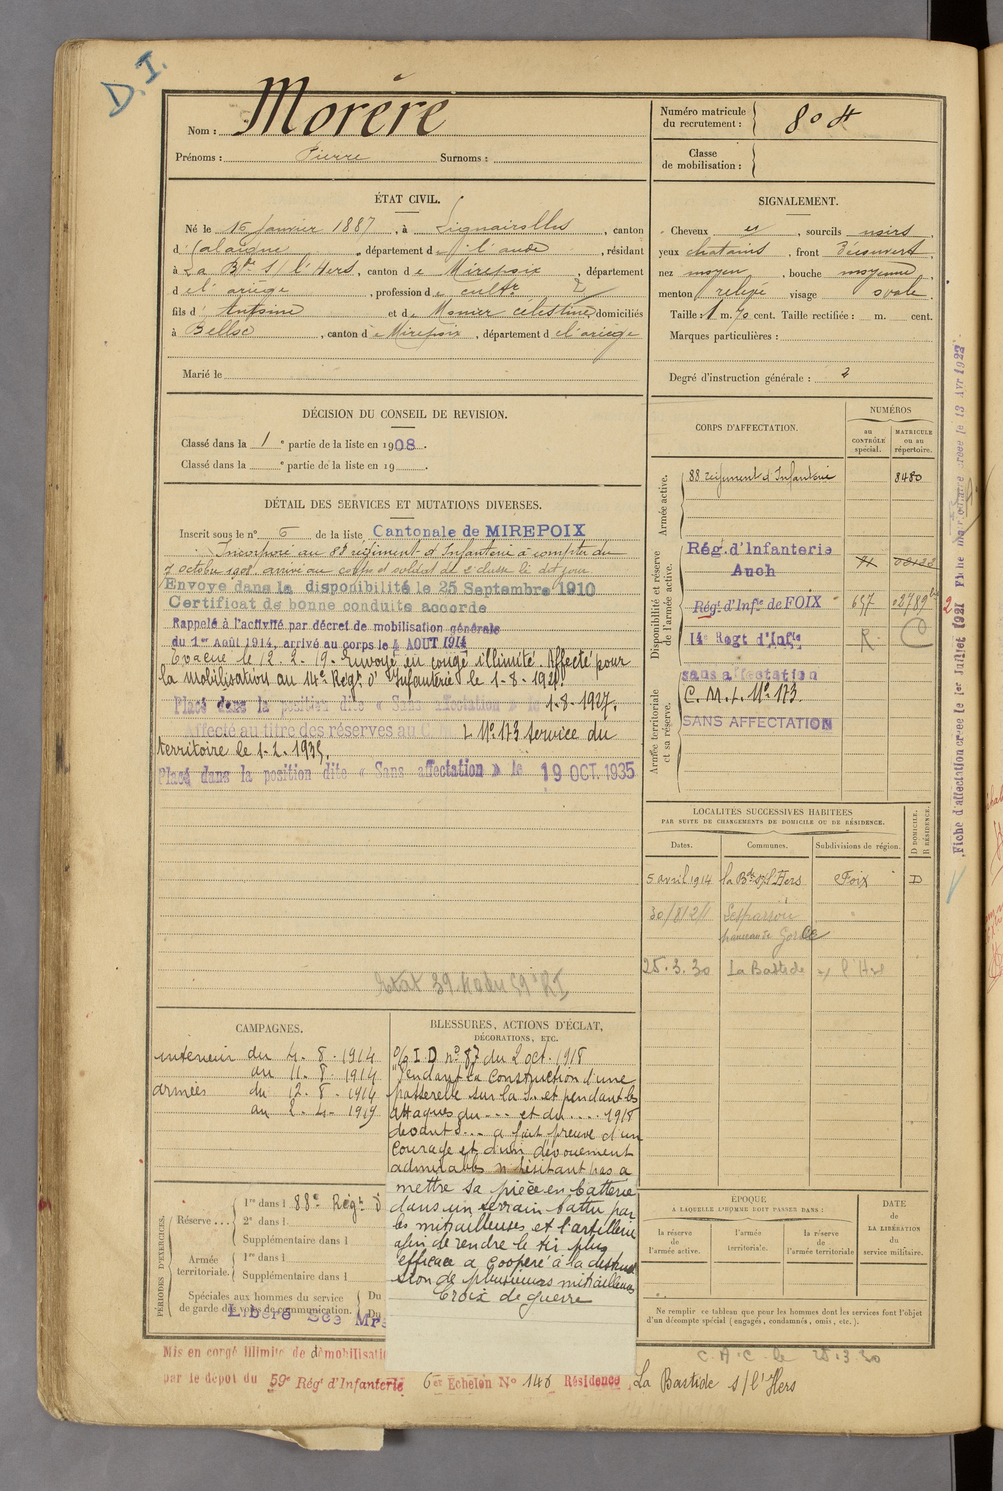 D. I.
Nom : Morère
Prénoms : Pierre Surnoms :
Numéro matricule du recrutement : 804
Classe de mobilisation :
ÉTAT CIVIL.
Né le 16 Janvier 1887, à Lignairolles, canton
d'Alaigne, département de l'aude, résidant
à La Bde s/ l'Hers, canton de Mirepoix, département
de l'ariège, profession de cultr
fils d'Antoine et de Monier célestine, domiciliés
à Belloc, canton de Mirepoix, département de l'ariége
Marié le
SIGNALEMENT.
Cheveux et, sourcils noirs
yeux chatains, front Découvert
nez moyen, bouche moyenne
menton relevé visage ovale
Taille : 1 m. 70 cent. Taille rectifiée : m. cent.
Marques particulières :
Degré d'instruction générale : 2
DÉCISION DU CONSEIL DE REVISION.
Classé dans la 1e partie de la liste en 1908.
Classé dans la e partie de la liste en 19 .
DÉTAIL DES SERVICES ET MUTATIONS DIVERSES.
Inscrit sous le n° 6 de la liste Cantonale de MIREPOIX
Incorporé au 88 régiment d'Infanterie à compter du
7 octobre 1908. arrivé au corps et soldat de 2 classe le dit jour.
Envoyé dans la disponibilité le 25 Septembre 1910
Certificat de bonne conduite accordé
Rappelé à l'activité par décret de mobilisation générale
du 1er Août 1914, arrivé au corps le 4 AOUT 1914
Evacué le 12-2-19. Envoyé en congé illimité. Affecté pour
la mobilisation au 14e Régt d'Infanterie le 1-8-192
Placé dans la position dite « Sans affectation » le 1-8-1927.
Affecté au titre des réserves au L No 173 Service du
territoire le 1-2-1935.
Placé dans la position dite « Sans affectation » le 19 OCT. 1935
CORPS D'AFFECTATION.
NUMÉROS
au CONTRÔLE spécial.
MATRICULE ou au répertoire.
Armée active.
88 régiment d'Infanterie 8480
Disponibilité et réserve de l'armée active.
Rég. d'Infanterie
Auch
Régt d'Infie de FOIX 657 02789
14e Regt d'Infie R C
Armée territoriale et sa réserve.
sans affectation
C. M. L. No 173.
SANS AFFECTATION
LOCALITÉS SUCCESSIVES HABITÉES
PAR SUITE DE CHANGEMENTS DE DOMICILE OU DE RÉSIDENCE.
Dates. Communes. Subdivisions de région. D DOMICILE. R RÉSIDENCE.
5 avril 1914 la Bde s/ l'Hers Foix D
25.3.30 La Bastide s/ l'Hers
CAMPAGNES.
intérieur du 4-8-1914
au 11-8-1914
armées du 12-8-1914
au 2-4-1919
BLESSURES, ACTIONS D'ÉCLAT,
DÉCORATIONS, ETC.
O/ I D no 87 du 2 oct. 1918
"Pendant la construction d'une
passerelle sur la S.. et pendant les
attaques du --- et du .... 1918
devant S... a fait preuve d'un
courage et d'un dévouement
admirables n'hésitant pas a
mettre sa pièce en batterie
dans un terrain battu par
les mitrailleuses et l'artillerie
afin de rendre le tir plus
efficace a coopéré à la destruc
tion de plusieurs mitrailleuses
Croix de guerre
PÉRIODES D'EXERCICES.
Réserve ... 1re dans l 88e Régt d
2e dans l
Supplémentaire dans l
Armée territoriale. 1re dans l
Supplémentaire dans l
Spéciales aux hommes du service de garde des voies de communication. Du
Du
Libéré
ÉPOQUE
À LAQUELLE L'HOMME DOIT PASSER DANS :
la réserve de l'armée active.
l'armée territoriale.
la réserve de l'armée territoriale
DATE de LA LIBÉRATION du service militaire.
Ne remplir ce tableau que pour les hommes dont les services font l'objet
d'un décompte spécial (engagés, condamnés, omis, etc.).
C.A.C. le 25.3.30
Mis en congé illimité de démobilisati
par le dépôt du 59e Régt d'Infanterie 6er Echelon No 146 Résidence La Bastide s/ l'Hers
Fiche d'affectation créée le 1er Juillet 1921